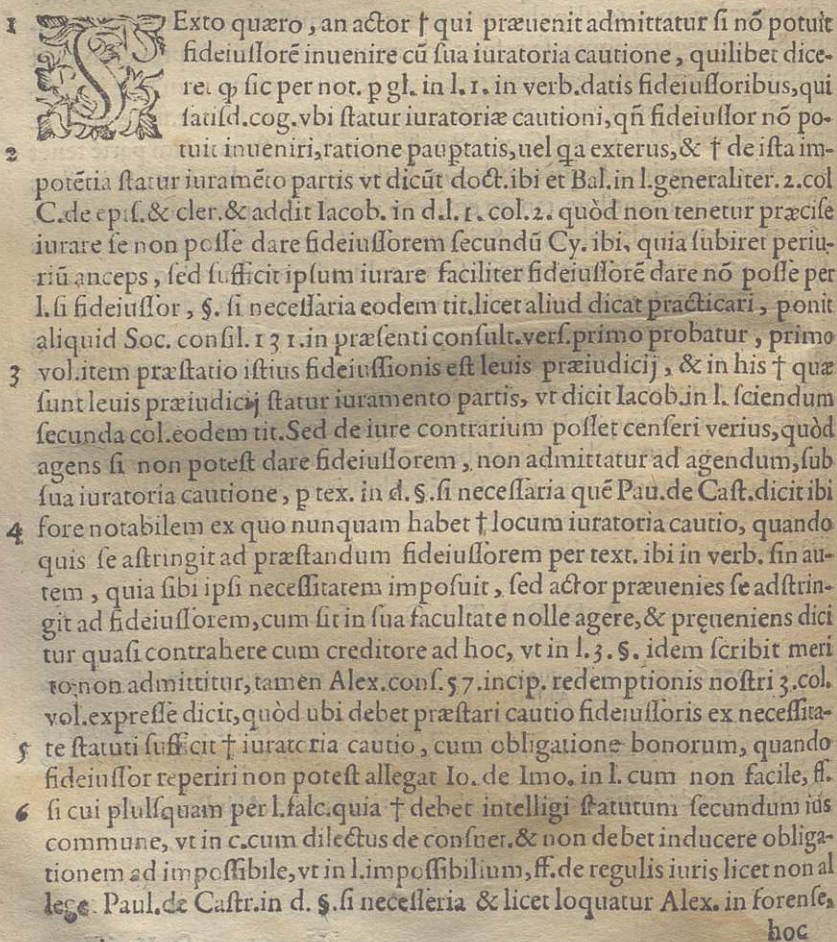 1 SExto quæro, an actor † qui præuenit admittatur si nō potuit
fideiussorē inuenire cū sua iuratoria cautione, quilibet dice-
ret ꝙ sic per not. p gl. in l. 1. in verb. datis fideiussoribus, qui
satisd. cog. vbi statur iuratoriæ cautioni, qñ fideiussor nō po-
2 tuit inueniri, ratione pauptatis, uel qa exterus, & † de ista im-
potētia statur iuramēto partis vt dicūt doct. ibi et Bal. in l. generaliter. 2. col
C. de epis. & cler. & addit Iacob. in d. l. 1. col. 2. quòd non tenetur præcise
iurare se non posse dare fideiussorem secundū Cy. ibi, quia subiret periu-
riū anceps, sed sufficit ipsum iurare faciliter fideiussorē dare nō posse per
l. si fideiussor, §. si necessaria eodem tit. licet aliud dicat practicari, ponit
aliquid Soc. consil. 131. in præsenti consult. vers. primo probatur, primo
3 vol. item præstatio istius fideiussionis est leuis præiudicij, & in his † quæ
sunt leuis præiudicij statur iuramento partis, vt dicit Iacob. in l. sciendum
secunda col. eodem tit. Sed de iure contrarium posset censeri verius, quòd
agens si non potest dare fideiussorem, non admittatur ad agendum, sub
sua iuratoria cautione, p tex. in d. §. si necessaria quē Pau. de Cast. dicit ibi
4 fore notabilem ex quo nunquam habet † locum iuratoria cautio, quando
quis se astringit ad præstandum fideiussorem per text. ibi in verb. sin au-
tem, quia sibi ipsi necessitatem imposuit, sed actor præuenies se adstrin-
git ad fideiussorem, cum sit in sua facultate nolle agere, & pręueniens dici
tur quasi contrahere cum creditore ad hoc, vt in l. 3. §. idem scribit meri
to non admittitur, tamen Alex. cons. 57. incip. redemptionis nostri 3. col.
vol. expresse dicit, quòd ubi debet præstari cautio fideiussoris ex necessita-
5 te statuti sufficit † iuratoria cautio, cum obligatione bonorum, quando
fideiussor reperiri non potest allegat Io. de Imo. in l. cum non facile, ff.
6 si cui plulsquam per l. falc. quia † debet intelligi statutum secundum ius
commune, vt in c. cum dilectus de consuet. & non debet inducere obliga-
tionem ad impossibile, vt in l. impossibilium, ff. de regulis iuris licet non al
lege. Paul. de Castr. in d. §. si necesseria & licet loquatur Alex. in forense,
hoc